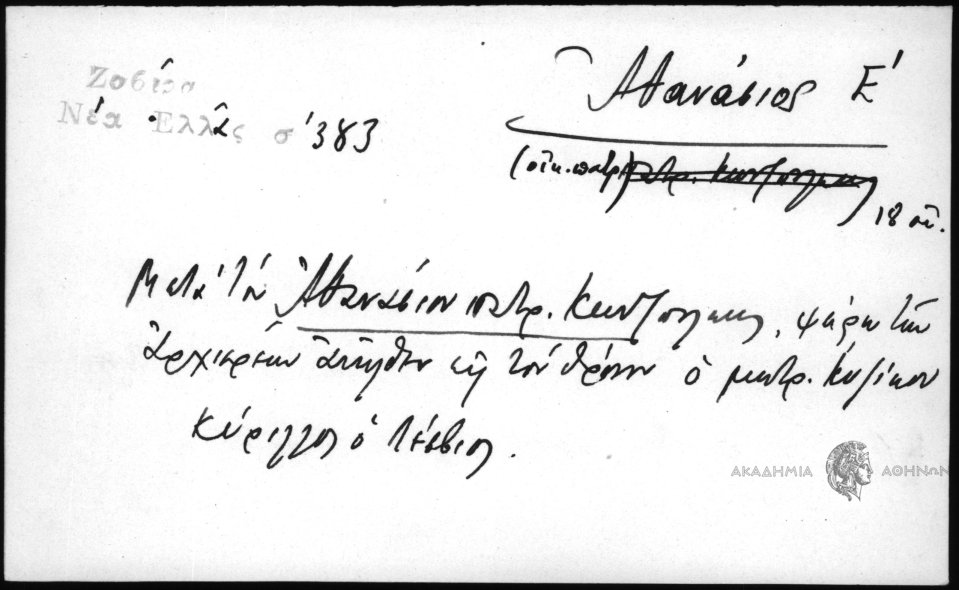 Ζαβίρα
Νέα Ἑλλάς σ' 383
Ἀθανάσιος Ε'
(οἰκ. πατρ. πατρ. Κωνσ/πόλεως) 18 αἰ.
Μετὰ τὸν Ἀθανάσιον πατρ. Κων/πόλεως, ψήφῳ τῶν
ἀρχιερέων ἀνῆλθεν εἰς τὸν θρόνον ὁ μητρ. Κυζίκου
Κύριλλος ὁ Λέσβιος.
ΑΚΑΔΗΜΙΑ ΑΘΗΝΩΝ